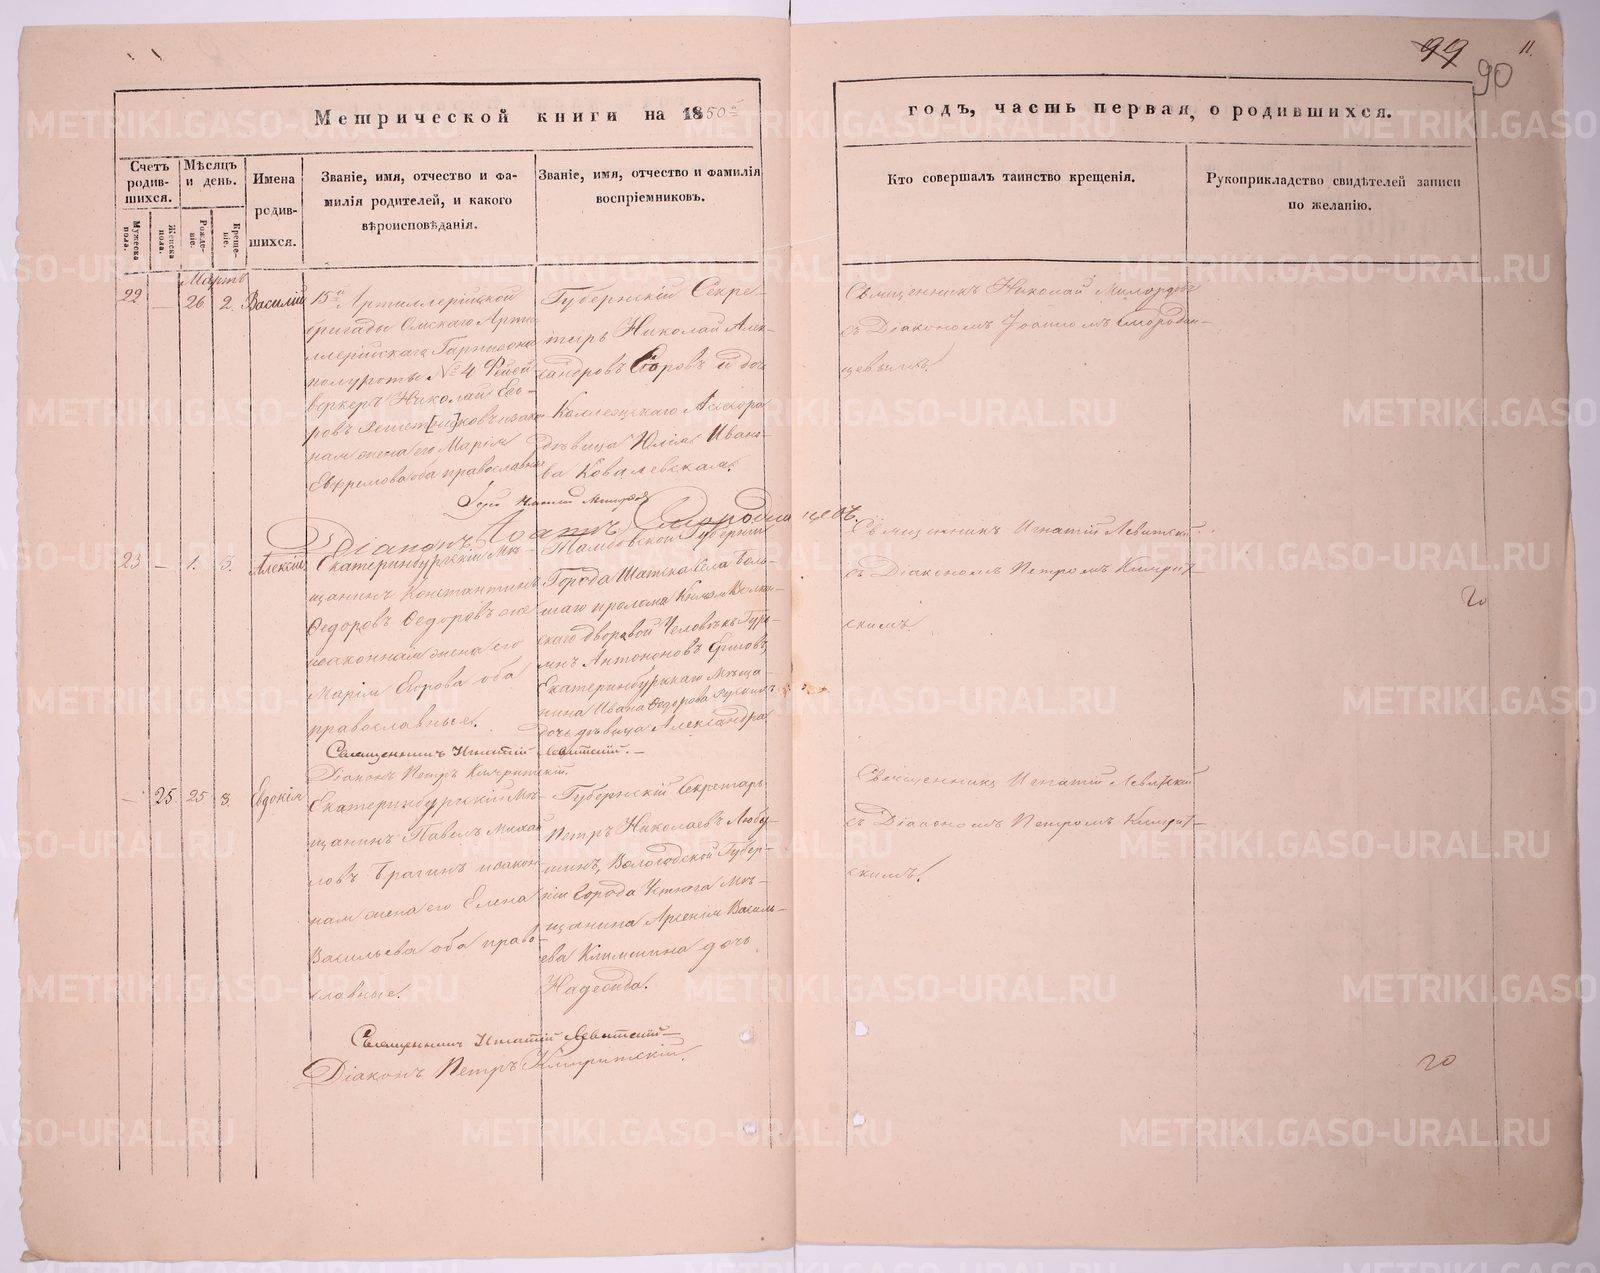 99
11
90
Метрической книги на 1850й
годъ, часть первая, о родившихся.
Счетъ родив-шихся.
Мужеска пола.
Женска пола.
Мѣсяцъ и день.
Рожде-ніе.
Креще-ніе.
Имена
родив-
шихся.
Званіе, имя, отчество и фа-
милія родителей, и какого
вѣроисповѣданія.
Званіе, имя, отчество и фамилія
воспріемниковъ.
Кто совершалъ таинство крещенія.
Рукоприкладство свидѣтелей записи
по желанію.
Мартъ
22 — 26 2. Василій
15й Артиллерійской
бригады Омскаго Арти-
ллерійскаго Гарнизона
полуроты № 4 Фейей
веркеръ Николай Его-
ровъ Решет[ни]ковъ изако
ная жена его Марія
Ефремова оба православные
Губернскій Секре-
тарь Николай Алек-
сандровъ и доч
Коллежскаго Асессора
дѣвица Юлія Иван-
ва Ковалевская.
Священникъ Николай
съ Діакономъ Іоанномъ Смородин-
цевымъ.
Діаконъ Іоаннъ Смородинцевъ
23 — 1. 3. Алексій
Екатеринбургскій Мѣ-
щанинъ Константинъ
Федоровъ Федоровъ
изаконная жена его
Марія Егорова оба
православные.
Тамбовской Губерніи
Города Шатска села Боль-
шаго пролома Князя Волкон-
скаго дворовой Человѣкъ
Антоновъ
Екатеринбургскаго Мѣща-
нина Ивана Федорова
дочь дѣвица Александра
Священникъ Игнатій Левитскій
съ Діакономъ Петромъ
скимъ.
20
Священникъ Игнатій Левитскій. —
Діаконъ Петръ
— 25 25 3. Евдокія
Екатеринбургскій Мѣ-
щанинъ Павелъ Михай
ловъ Брагинъ изакон
ная жена его Елена
Васильева оба право-
славные.
Губернскій Секретарь
Петръ Николаевъ Любу-
шинъ, Вологодской Губер-
ніи Города Устюга Мѣ-
щанина Арсенія Василь-
ева Климшина дочь
Надежда.
Священникъ Игнатій Левитскій
съ Діакономъ Петромъ
скимъ.
Священникъ Игнатій Левитскій —
Діаконъ Петръ
20
METRIKI.GASO-URAL.RU